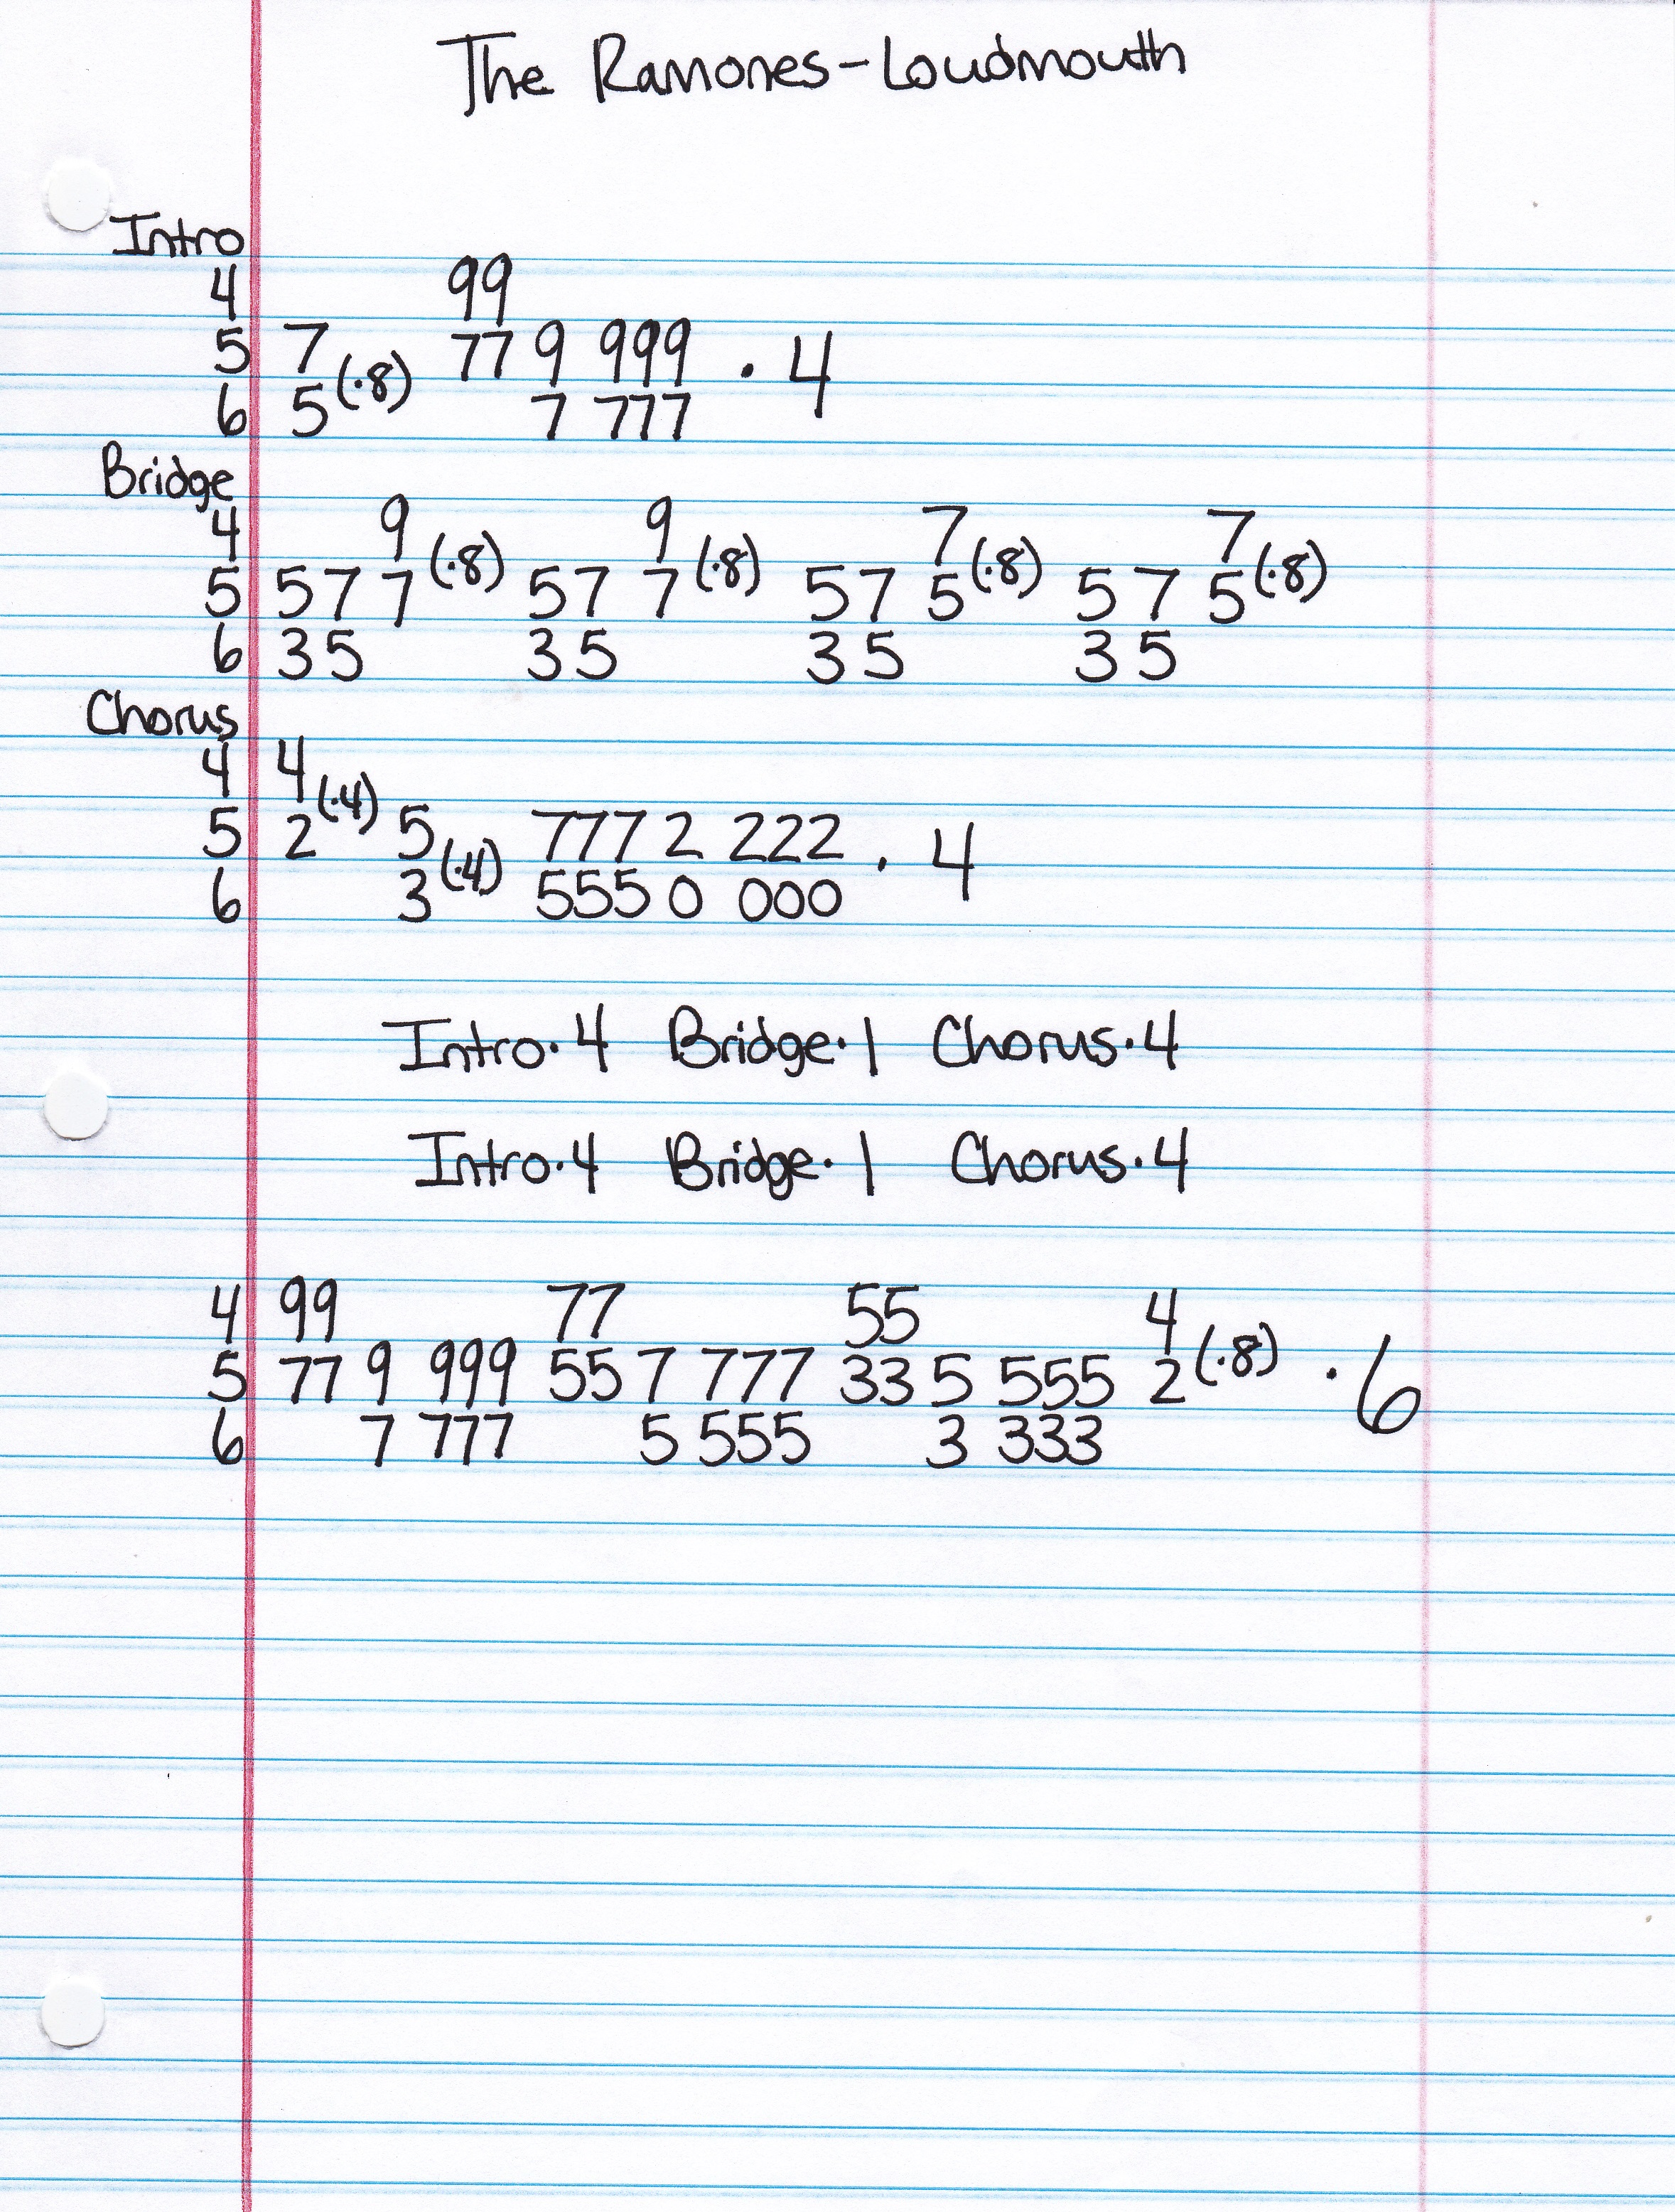 The Ramones-Loudmouth
Intro
4 99
5 7 (·8) 77 9 999 · 4
6 5 7 777
Bridge
4 9 (·8) 9 (·8) 7 (·8) 7 (·8)
5 5 7 7 5 7 7 5 7 5 5 7 5
6 3 5 3 5 3 5 3 5
Chorus
4 4 (·4)
5 2 5 (·4) 777 2 222 · 4
6 3 555 0 000
Intro·4 Bridge·1 Chorus·4
Intro·4 Bridge·1 Chorus·4
4 99 77 55 4
5 77 9 999 55 7 777 33 5 555 2 (·8) · 6
6 7 777 5 555 3 333